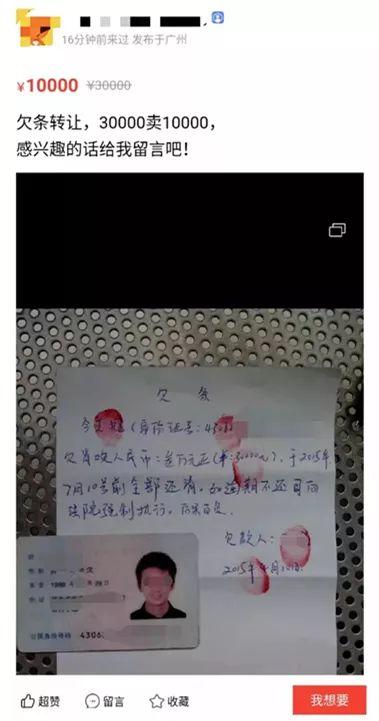 16分钟前来过 发布于广州
¥10000 ¥30000
欠条转让，30000卖10000，
感兴趣的话给我留言吧！
欠 条
今 (身份证号: 4306
欠 人民币: 叁万元正(¥:30000元), 于2015年
7月10号前全部还清。如逾期不还可向
法院强制执行。
欠款人:
2015年4月10日
公民身份号码 4306
超赞 留言 收藏 我想要